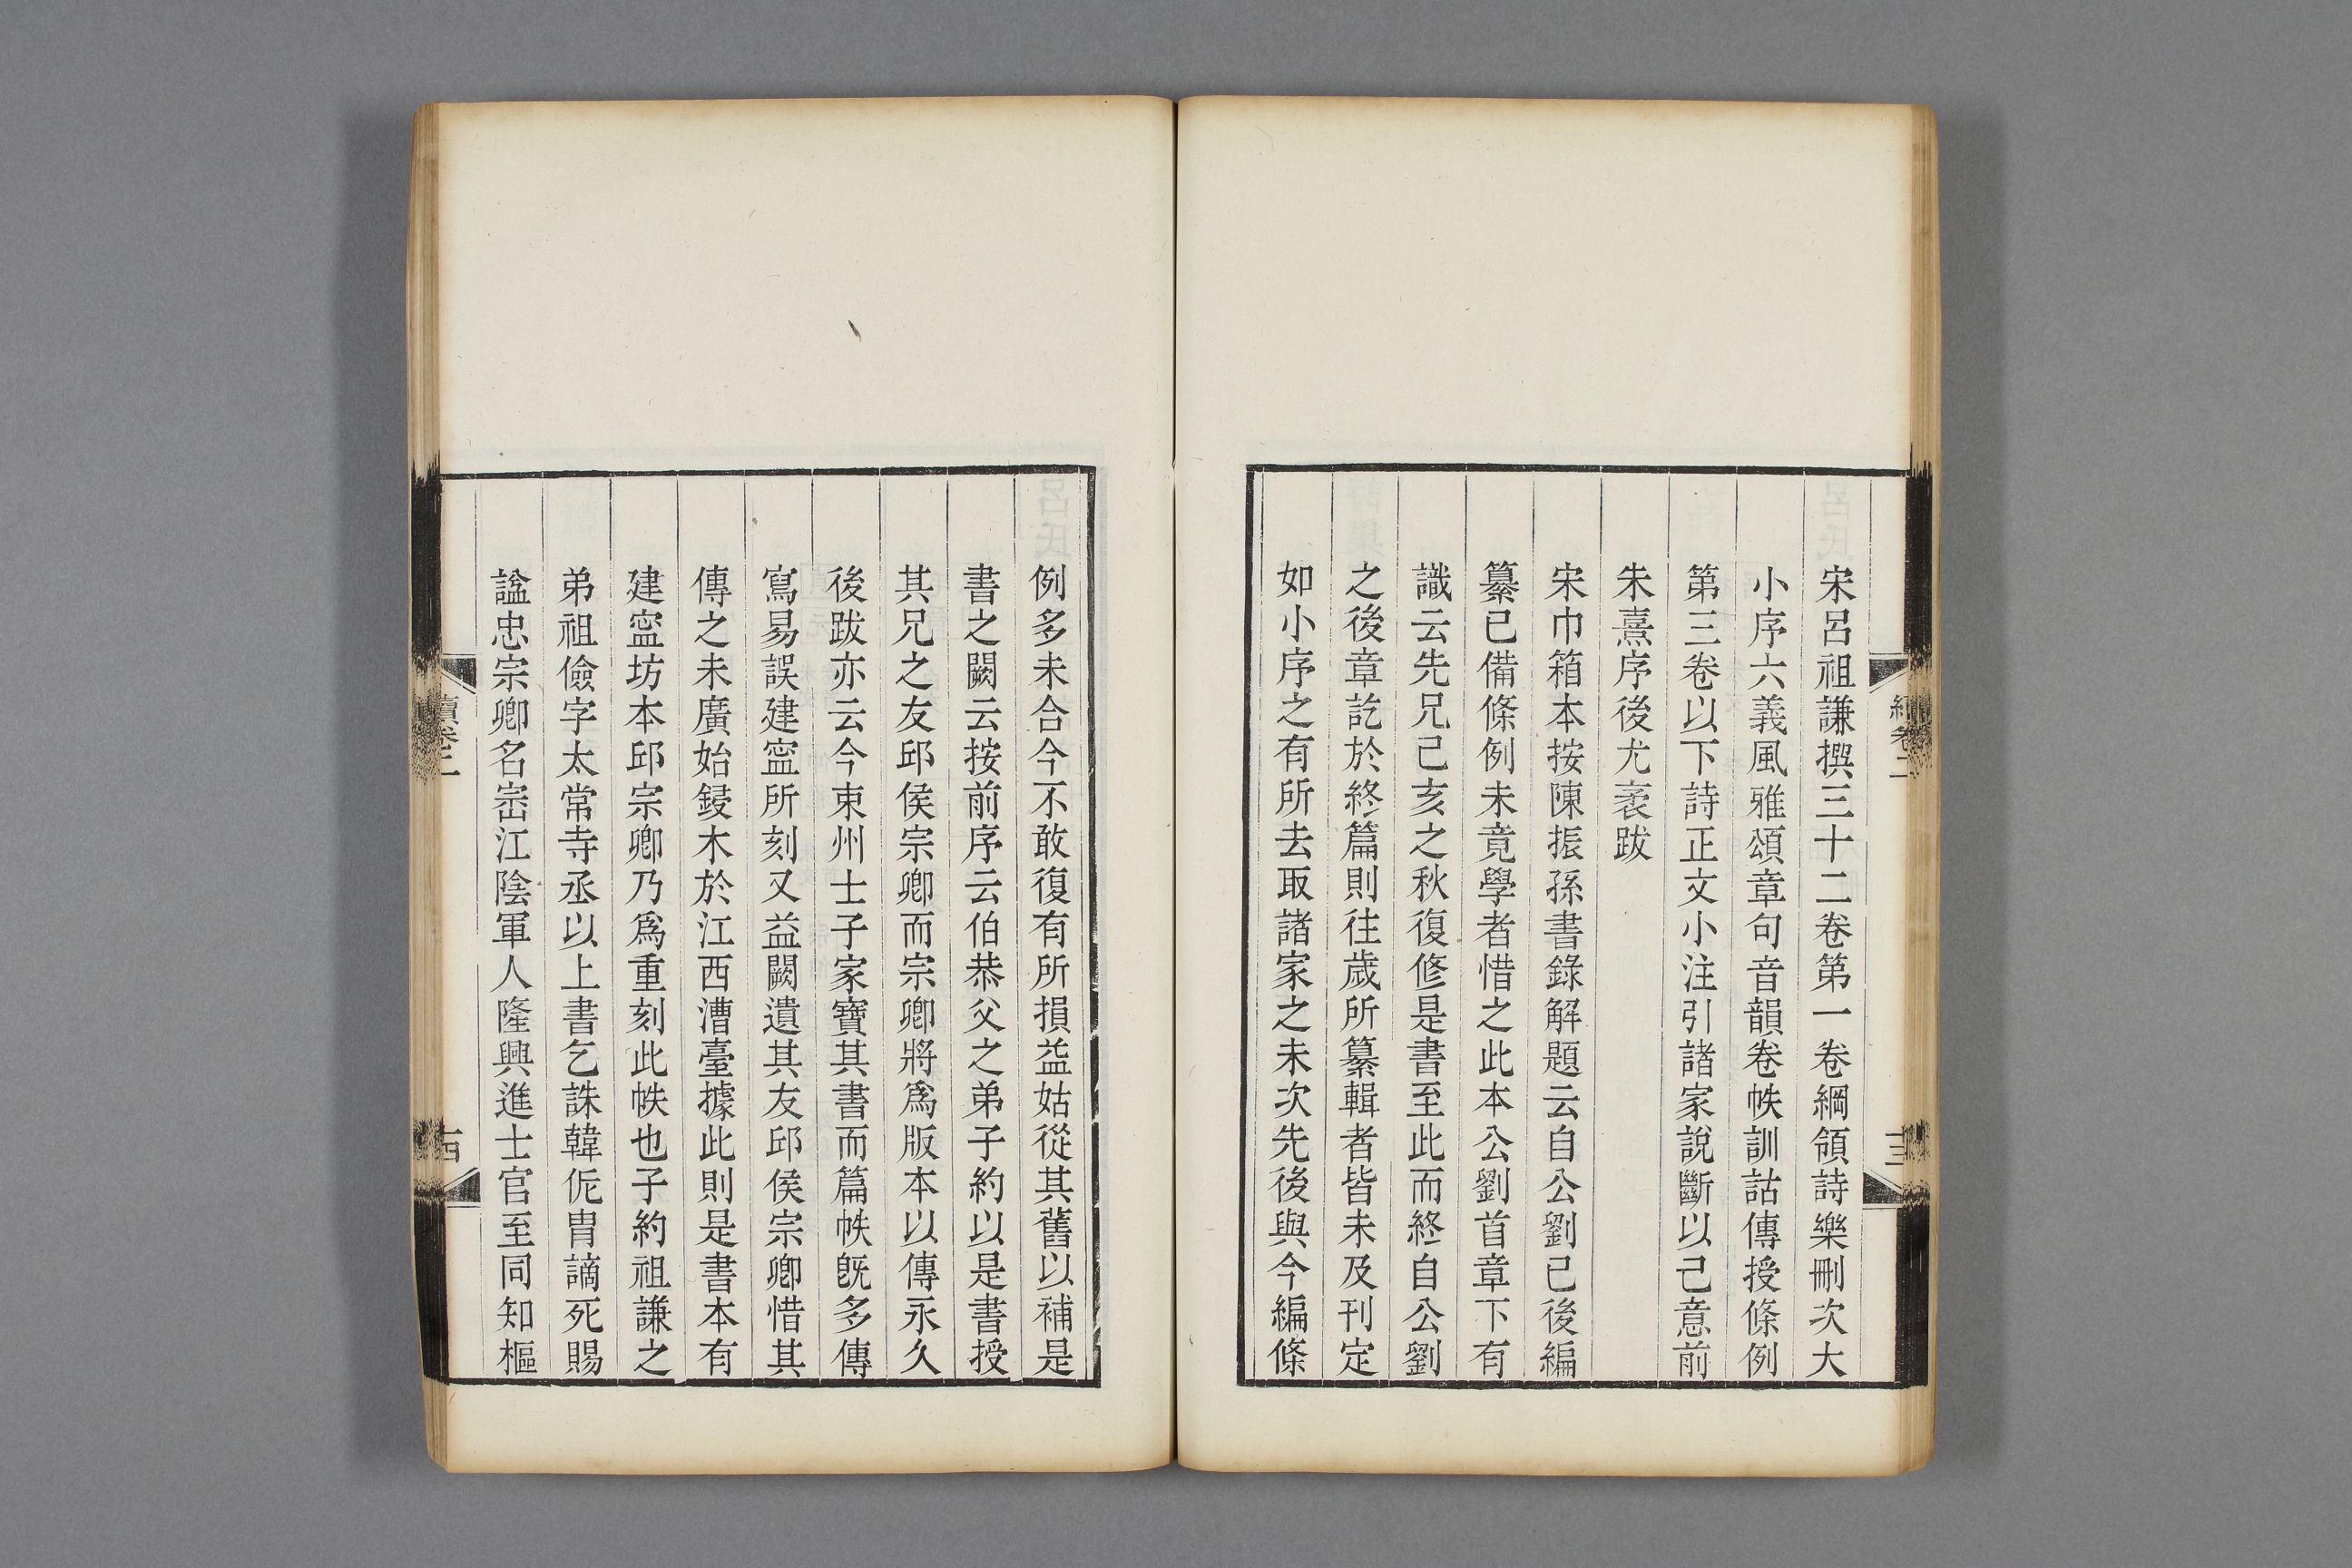 宋呂祖謙撰三十二卷第一卷綱領詩樂刪次大
小序六義風雅頌章句音韻卷帙訓詁傳授條例
第三卷以下詩正文小注引諸家說斷以己意前
朱熹序後尤袤跋
宋巾箱本按陳振孫書錄解題云自公劉已後編
纂已備條例未竟學者惜之此本公劉首章下有
識云先兄己亥之秋復修是書至此而終自公劉
之後章訖於終篇則往歲所纂輯者皆未及刊定
如小序之有所去取諸家之未次先後與今編條
例多未合今不敢復有所損益姑從其舊以補是
書之闕云按前序云伯恭父之弟子約以是書授
其兄之友邱侯宗卿而宗卿將爲版本以傳永久
後跋亦云今東州士子家寶其書而篇帙既多傳
寫易誤建寍所刻又益闕遺其友邱侯宗卿惜其
傳之未廣始鋟木於江西漕臺據此則是書本有
建寍坊本邱宗卿乃爲重刻此帙也子約祖謙之
弟祖儉字太常寺丞以上書乞誅韓侂胄謫死賜
諡忠宗卿名崈江陰軍人隆興進士官至同知樞